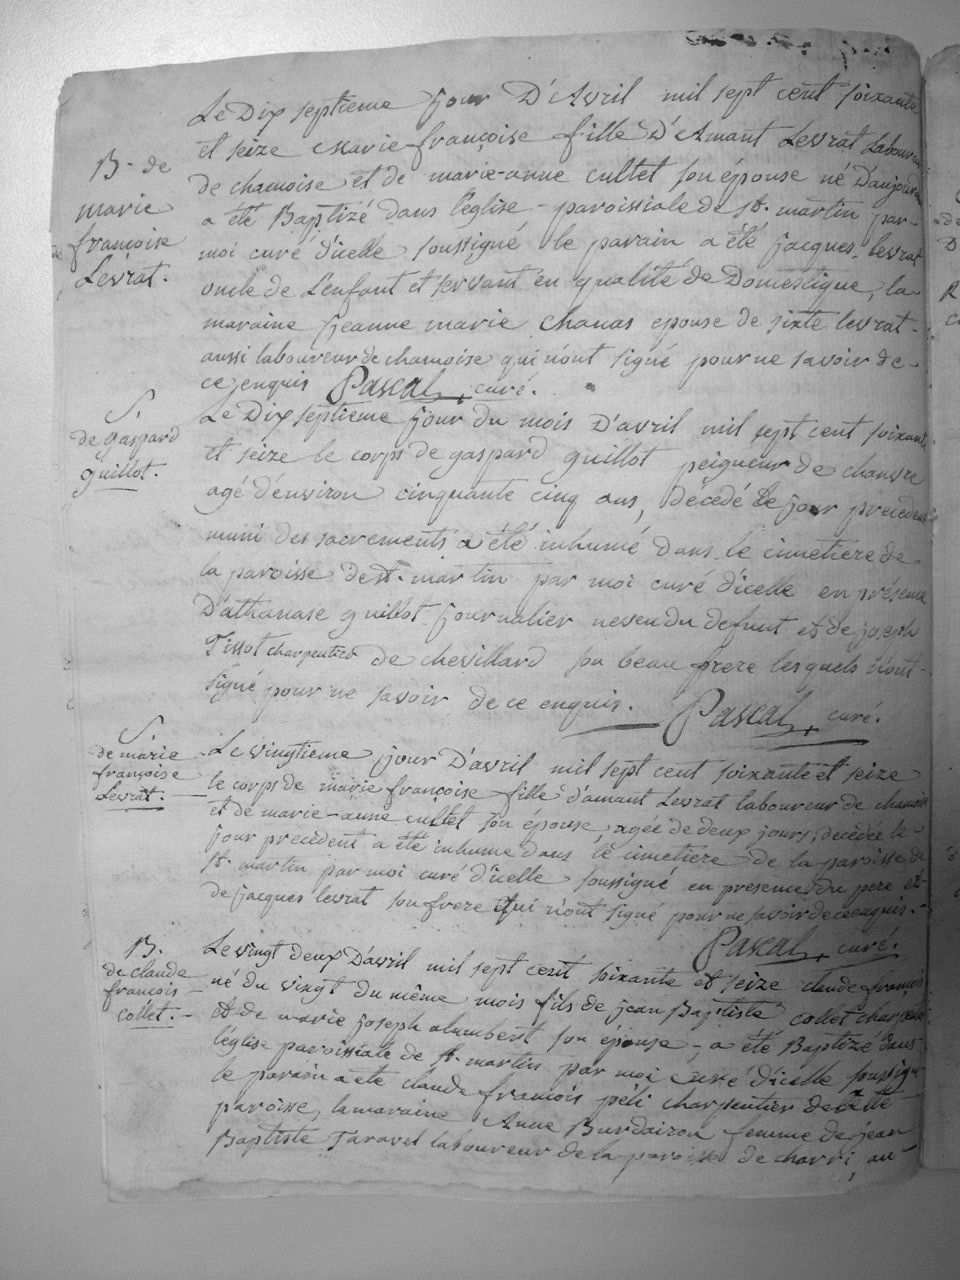 Le Dix septieme jour D'Avril mil sept cent soixante
et seize marie françoise fille D'Amant Levrat Laboureur
B. de
marie
françoise
Levrat.
de chamoise et de marie-anne cultet son épouse né D'aujourd
a été Baptizé dans l'église paroissiale de St. martin par
moi curé d'icelle soussigné le parain a été jacques levrat
oncle de L'enfant et servant en qualité de Domescique, la
maraine jeanne marie chanas epouse de sixte levrat
aussi laboureur de chamoise qui n'ont signé pour ne savoir de
ce enquis Pascal, curé.
S.
de gaspard
guillot.
Le Dix septieme jour du mois D'avril mil sept cent soixant
et seize le corps de gaspard guillot peigneur de chanvre
agé d'environ cinquante cinq ans, décédé le jour précédent
muni des sacrements a été inhumé dans le cimetiere de
la paroisse de St. martin par moi curé d'icelle en présence
D'athanase guillot journalier neveu du defunt et de joseph
Tissot charpentier de chevillard son beau frere lesquels n'ont
signé pour ne savoir de ce enquis. Pascal, curé.
S.
de marie
françoise
Levrat.
Le vingtieme jour D'avril mil sept cent soixante et seize
le corps de marie françoise fille d'amant Levrat laboureur de chamoise
et de marie-anne cultet son épouse, agée de deux jours, décédée le
jour precédent a été inhumé dans le cimetiere de la paroisse de
St. martin par moi curé d'icelle soussigné en presence du pere et
de jacques levrat son frere qui n'ont signé pour ne savoir de ce enquis.
Pascal, curé.
B.
de claude
francois
collet.
Le vingt deux D'avril mil sept cent soixante et seize claude francois
né du vingt du même mois fils de jean Baptiste collet charpentier
et de marie joseph alumbert son épouse, a été Baptizé dans
l'église paroissiale de St. martin par moi curé d'icelle soussigné
le parain a été claude francois péli charpentier de cette
paroisse, la maraine Anne Burdairon femme de jean
Baptiste Taravel laboureur de la paroisse de charri, au-